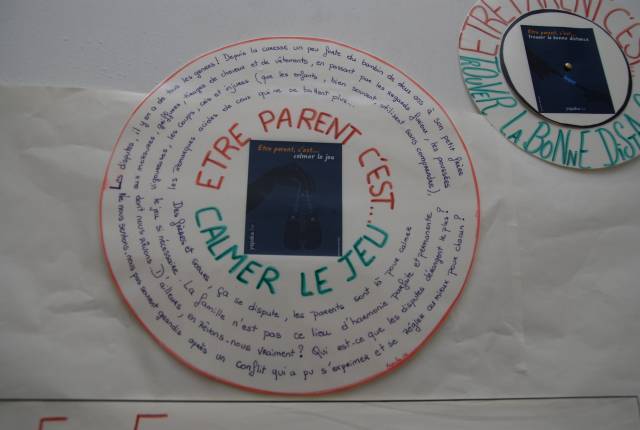 ETRE PARENT C'EST...
CALMER LE JEU
Etre parent, c'est...
calmer le jeu
Les disputes, il y en a de tous les genres! Depuis la caresse un peu forte du bambin de deux ans à son petit frère
aux morsures, griffures, tirages de cheveux et de vêtements, en passant par les regards furieux, les poussées
vigoureuses, les coups, cris et injures (que les enfants, bien souvent, utilisent sans comprendre),
les remarques acides de ceux qui ne se battent plus...
Des frères et soeurs, ça se dispute, les parents sont là pour calmer
si nécessaire. La famille n'est pas ce lieu d'harmonie parfaite et permanente
dont nous rêvons. D'ailleurs, en rêvons-nous vraiment? Qui est-ce que les disputes dérangent le plus?
Ne nous sentons-nous pas souvent grandis après un conflit qui a pu s'exprimer et se régler au mieux pour chacun?
ETRE PARENT C'EST
TROUVER LA BONNE DISTA
Etre parent, c'est...
trouver la bonne distance